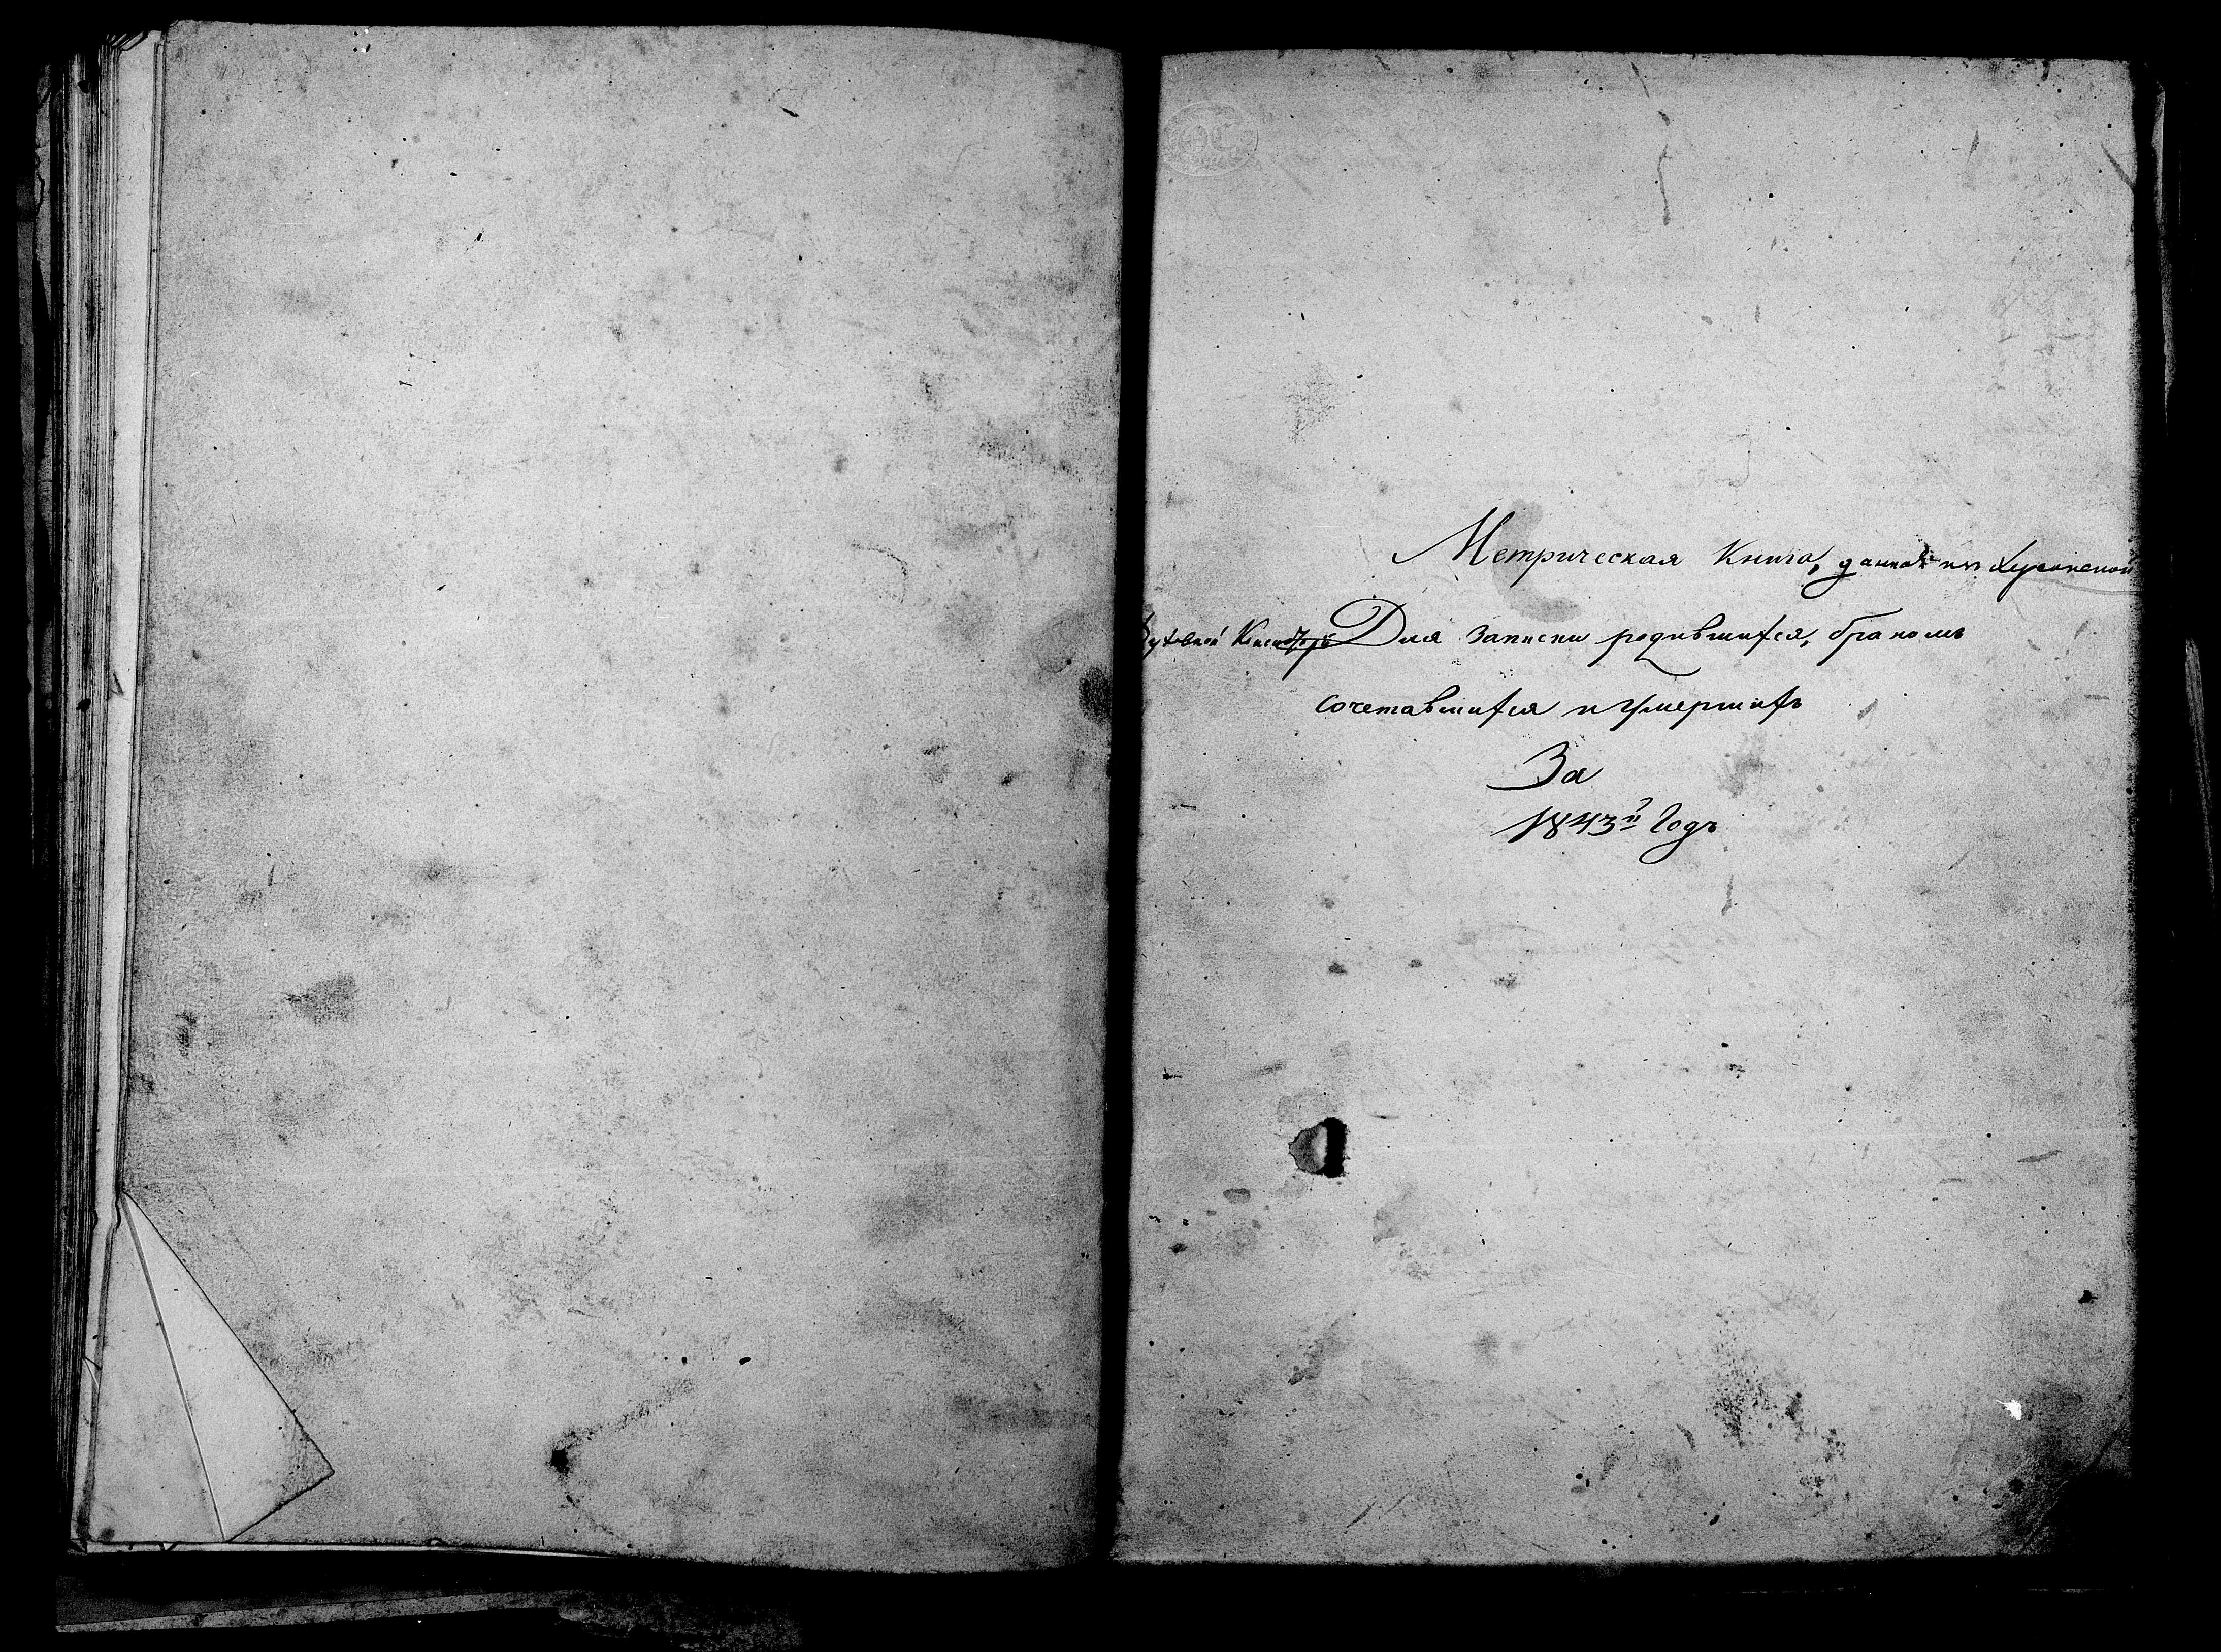 Метрическая Книга, данная изъ Херсонской
Духовной Консисторіи Для записки родившихся, бракомъ
сочетавшихся и умершихъ
За
1843й Годъ